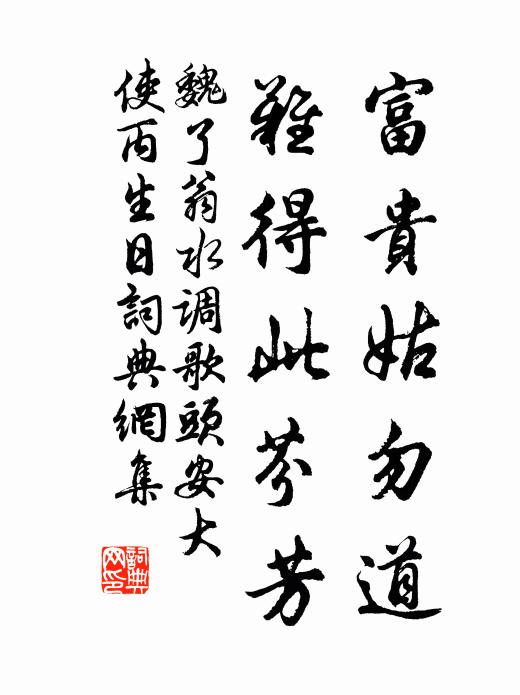 富貴姑勿道
難得此芬芳
魏了翁水调歌頭安大
使丙生日詞典網集
詞典网印